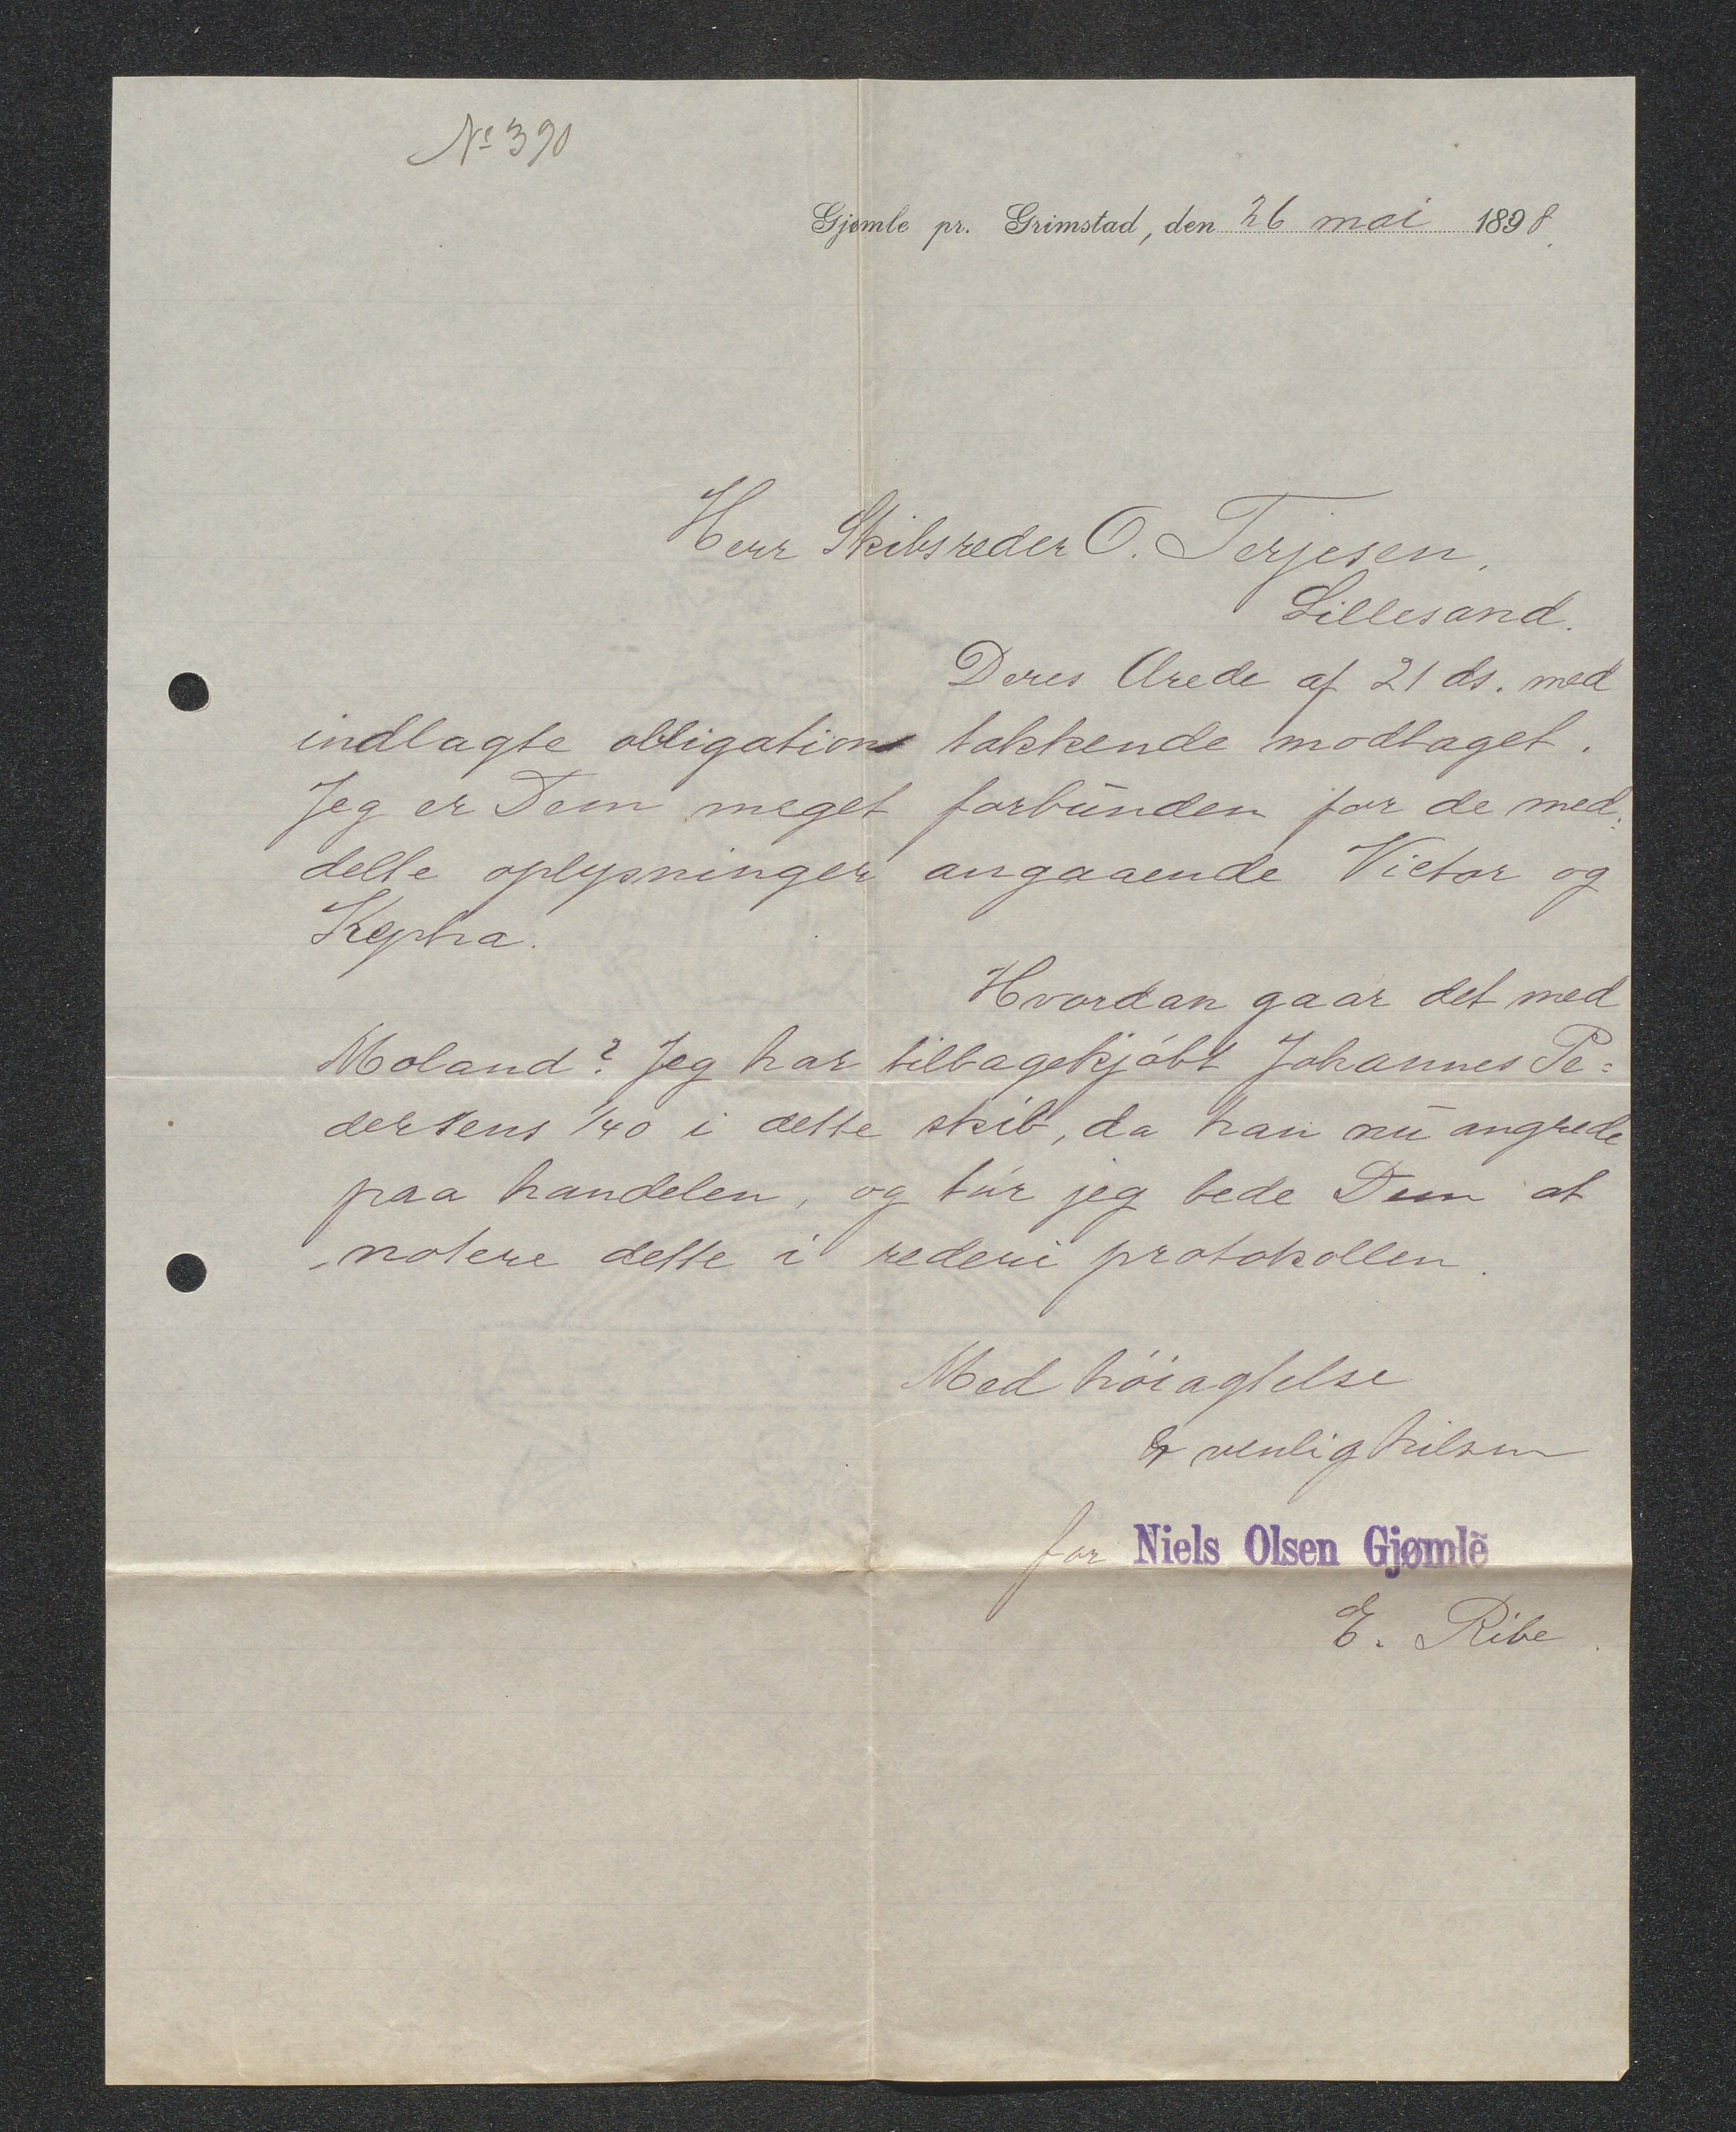 No 390
Gjømle pr. Grimstad, den 26 mai 1898.
Herr Skibsreder O. Terjesen.
Lillesand.
Deres Ærede af 21 ds. med
indlagte obligation takkende modtaget.
Jeg er Dem meget forbunden for de med:
delte oplysninger angaaende Victor og
Kepha.
Hvordan gaar det med
Moland? Jeg har tilbagekjøbt Johannes Pe=
dersens 1/40 i dette skib, da han nu angrede
paa handelen, og tør jeg bede Dem at
notere dette i rederi protokollen.
Med høiagtelse
& venlig hilsen
for Niels Olsen Gjømle
E. Ribe.